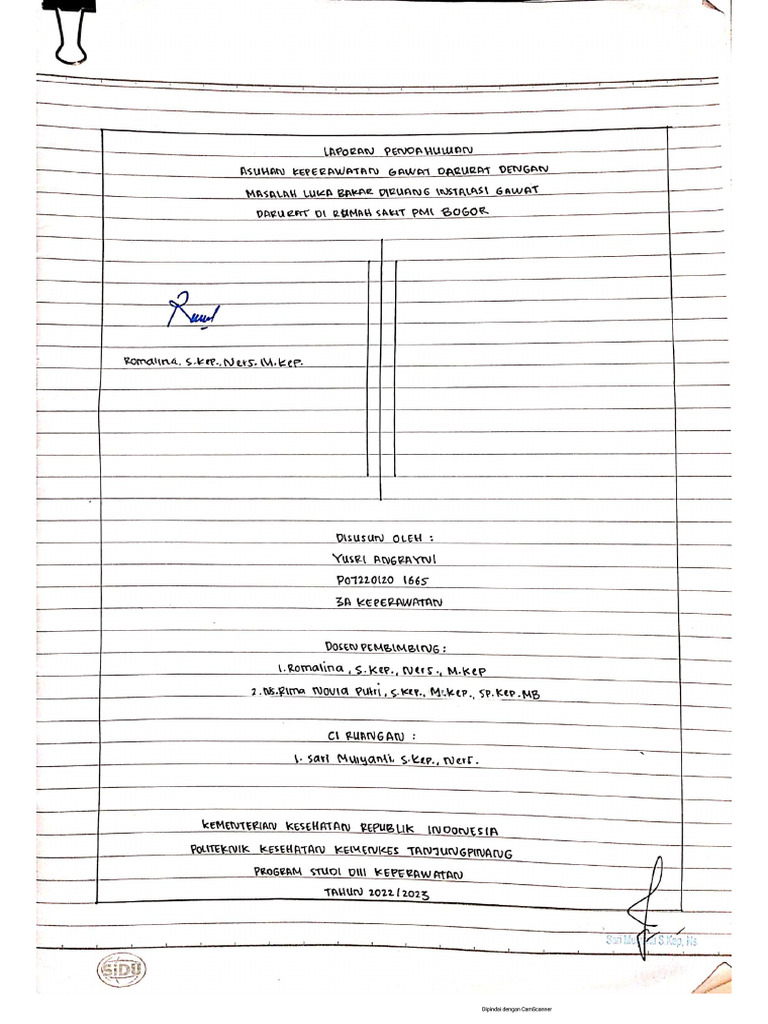 LAPORAN PENDAHULUAN
ASUHAN KEPERAWATAN GAWAT DARURAT DENGAN
MASALAH LUKA BAKAR DIRUANG INSTALASI GAWAT
DARURAT DI RUMAH SAKIT PMI BOGOR
Romalina, S.Kep., Ners. M.Kep.
DISUSUN OLEH :
YUSRI ANGRAYNI
P07220120 1665
3A KEPERAWATAN
DOSEN PEMBIMBING :
1. Romalina, S.Kep., Ners., M.Kep
2. Ns. Rima Novia Putri, S.Kep., M.Kep., SP.Kep.MB
CI RUANGAN :
1. Sari Mulyanti. S.Kep., Ners.
KEMENTERIAN KESEHATAN REPUBLIK INDONESIA
POLITEKNIK KESEHATAN KEMENKES TANJUNGPINANG
PROGRAM STUDI DIII KEPERAWATAN
TAHUN 2022/2023
Sari S.Kep, Ns
SiDU
Dipindai dengan CamScanner